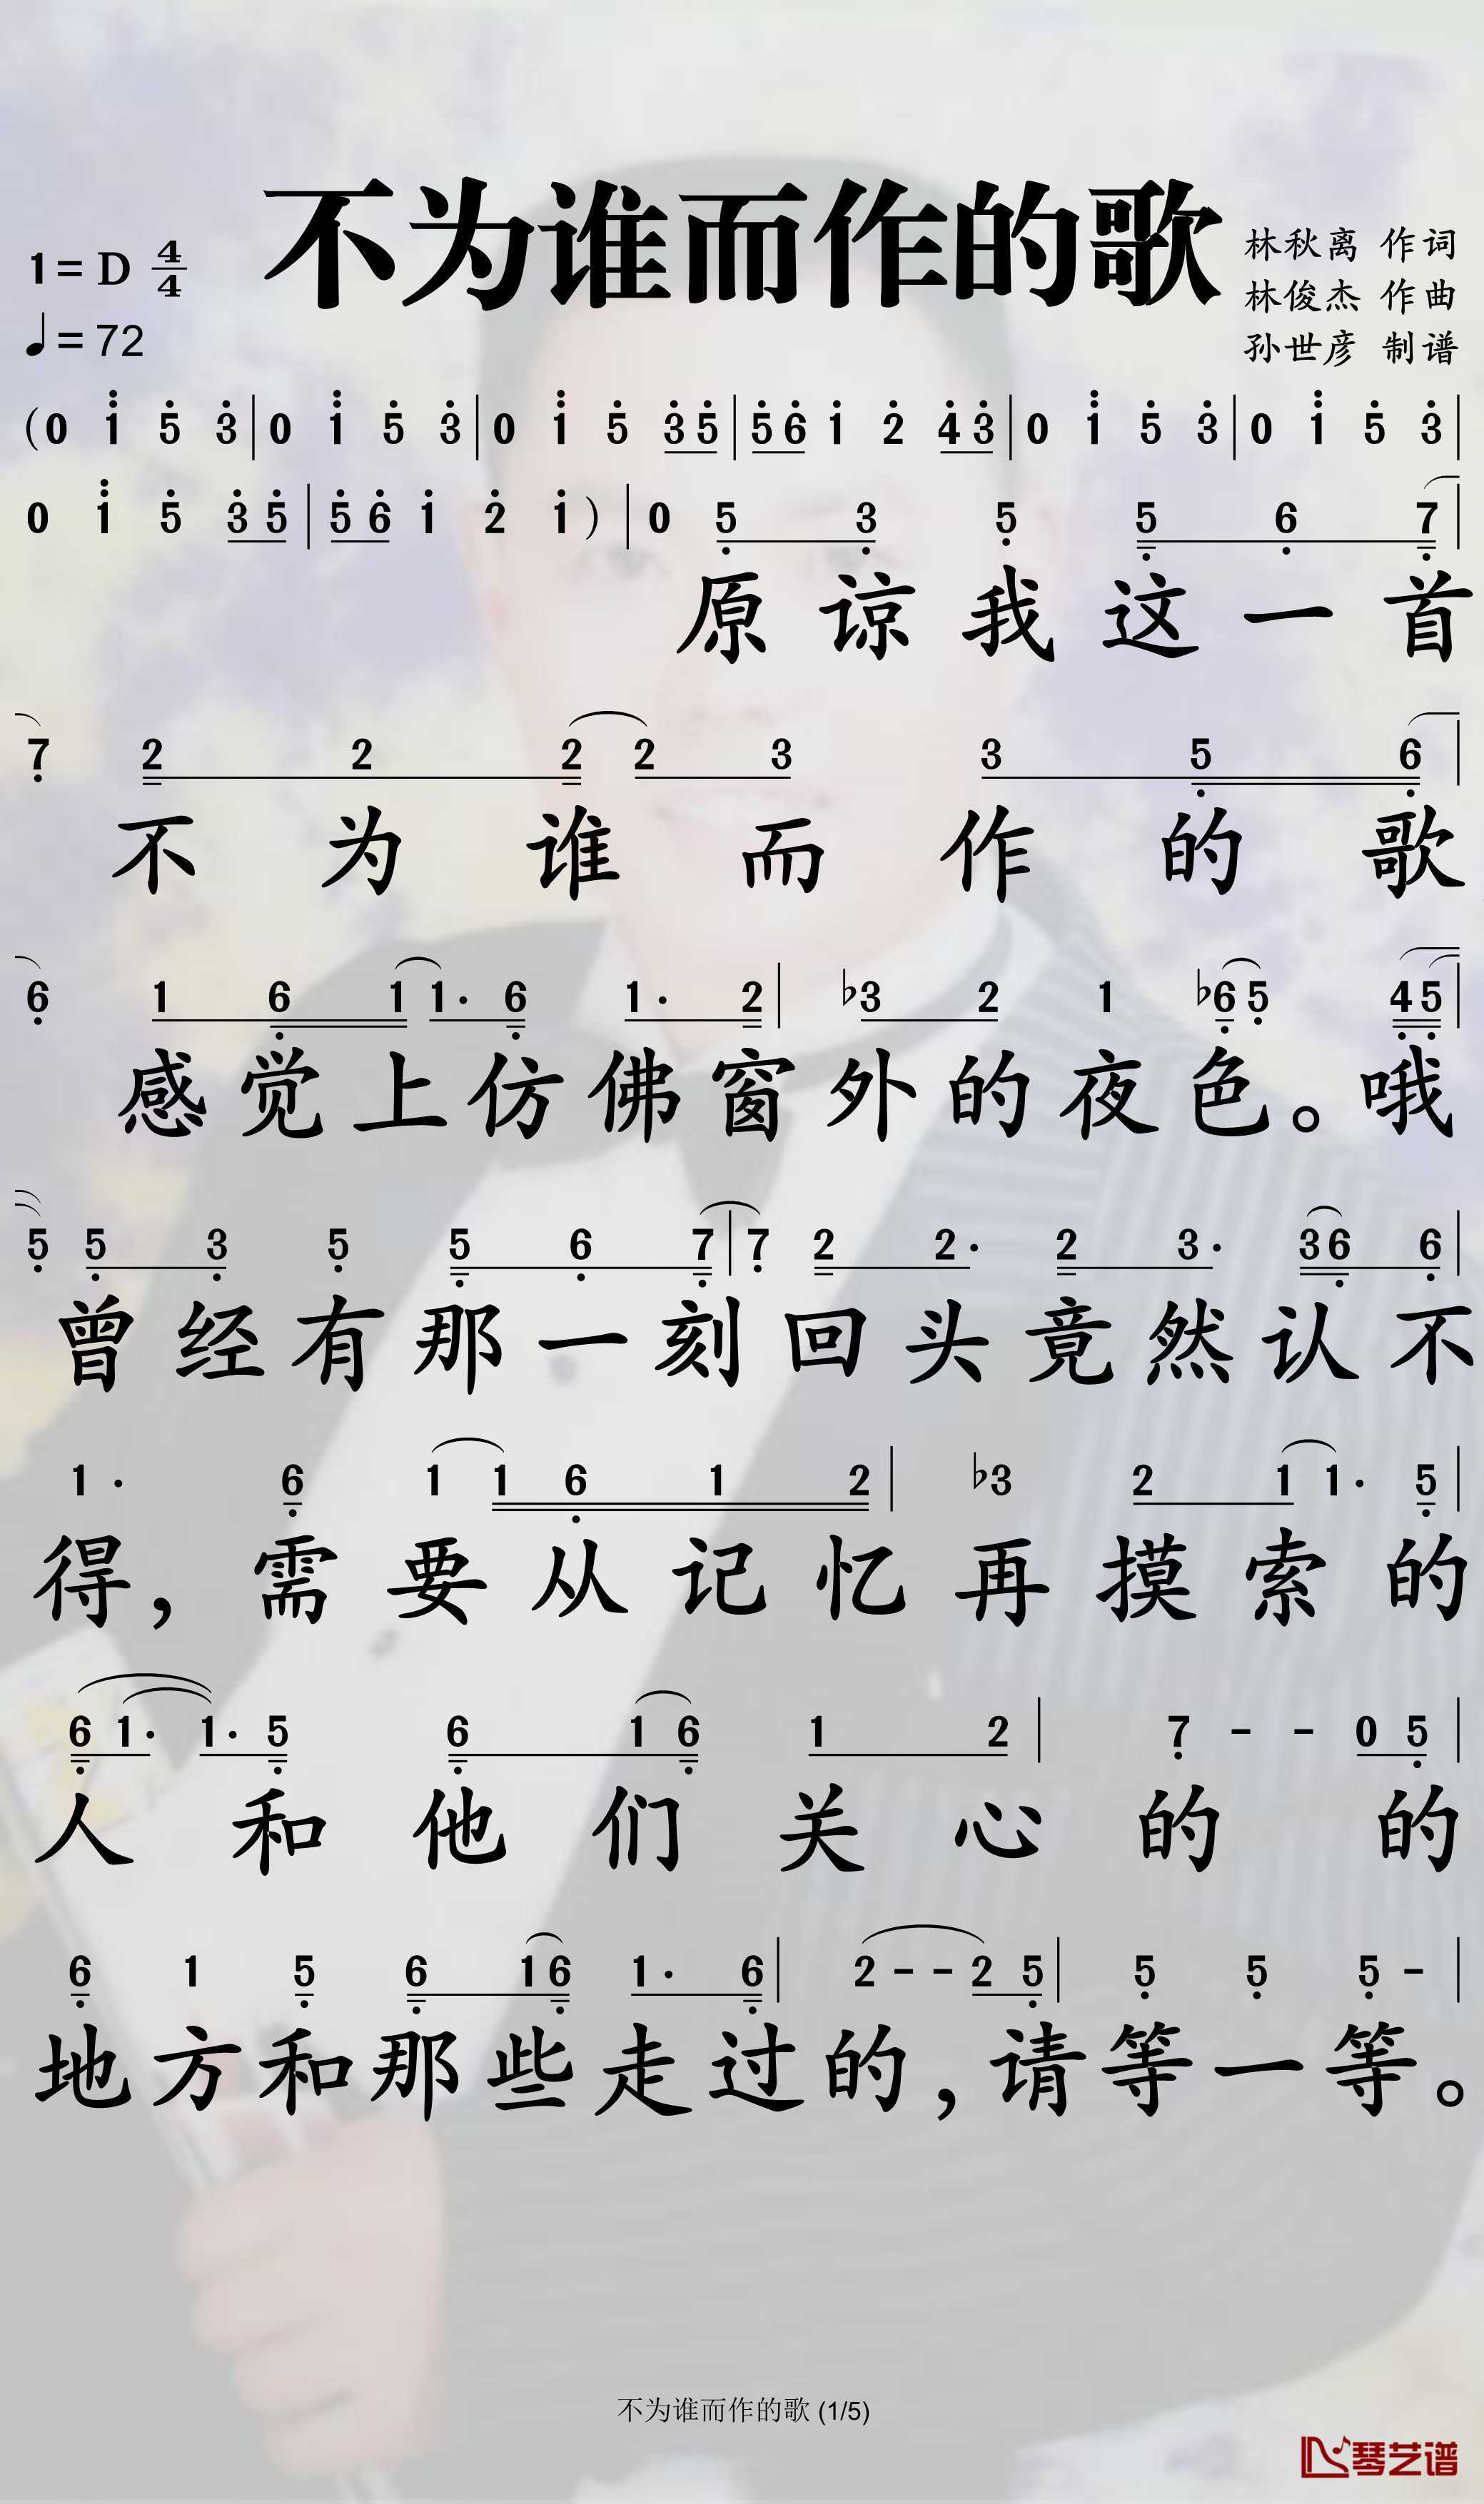 不为谁而作的歌
1=D 4/4
♩=72
林秋离 作词
林俊杰 作曲
孙世彦 制谱
(0 1 5 3 | 0 1 5 3 | 0 1 5 3 5 | 5 6 1 2 4 3 | 0 1 5 3 | 0 1 5 3 |
0 1 5 3 5 | 5 6 1 2 1 ) | 0 5 3 5 5 6 7 |
原谅我这一首
7 2 2 2 2 3 3 5 6 |
不为谁而作的歌
6 1 6 1 1· 6 1· 2 | ♭3 2 1 ♭6 5 4 5 |
感觉上仿佛窗外的夜色。哦
5 5 3 5 5 6 7 | 7 2 2· 2 3· 3 6 6 |
曾经有那一刻回头竟然认不
1· 6 1 1 6 1 2 | ♭3 2 1 1· 5 |
得，需要从记忆再摸索的
6 1· 1· 5 6 1 6 1 2 | 7 - - 0 5 |
人和他们关心的的
6 1 5 6 1 6 1· 6 | 2 - - 2 5 | 5 5 5 - |
地方和那些走过的，请等一等。
不为谁而作的歌 (1/5)
琴艺谱